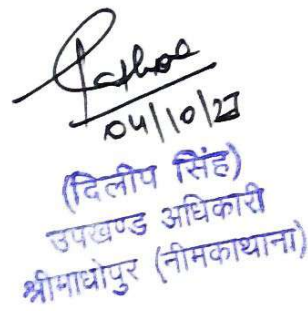 04/10/23
(दिलीप सिंह)
उपखण्ड अधिकारी
श्रीमाधोपुर (नीमकाथाना)